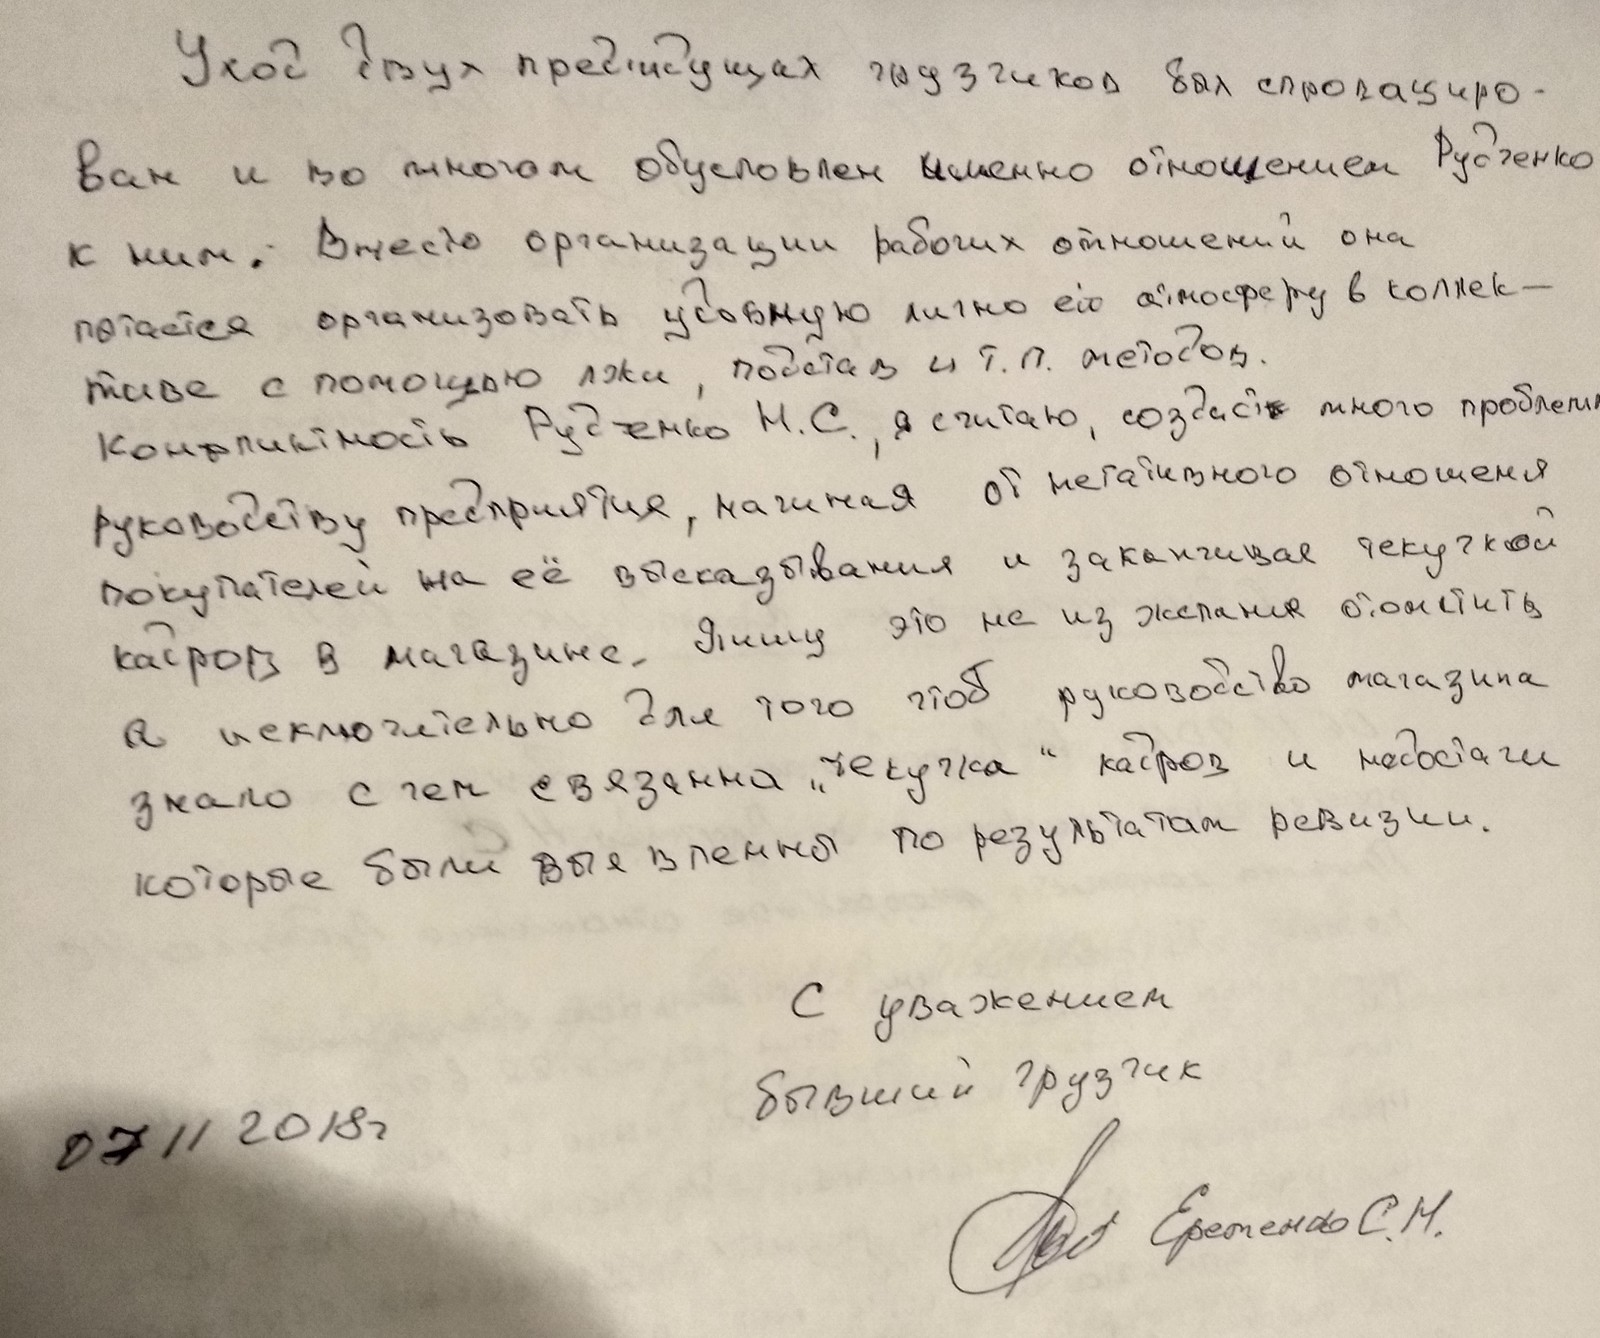 Уход двух предидущах грузчиков был спровациро-
ван и во многом обусловлен именно отношением Рудченко
к ним. Вместо организации рабочих отношений она
пытается организовать удобную лично ей атмосферу в коллек-
тиве с помощью лжи, подстав и т.п. методов.
Конфликтность Рудченко Н.С., я считаю, создаст много проблем
руководству предприятия, начиная от негативного отношеня
покупателей на её высказывания и заканчивая текучкой
кадров в магазине. Пишу это не из желания отомстить
а исключительно для того чтоб руководство магазина
знало с чем связанна „текучка“ кадров и недостачи
которые были выявленны по результатам ревизии.
С уважением
бывший грузчик
07 11 2018г
Еременко С.Н.